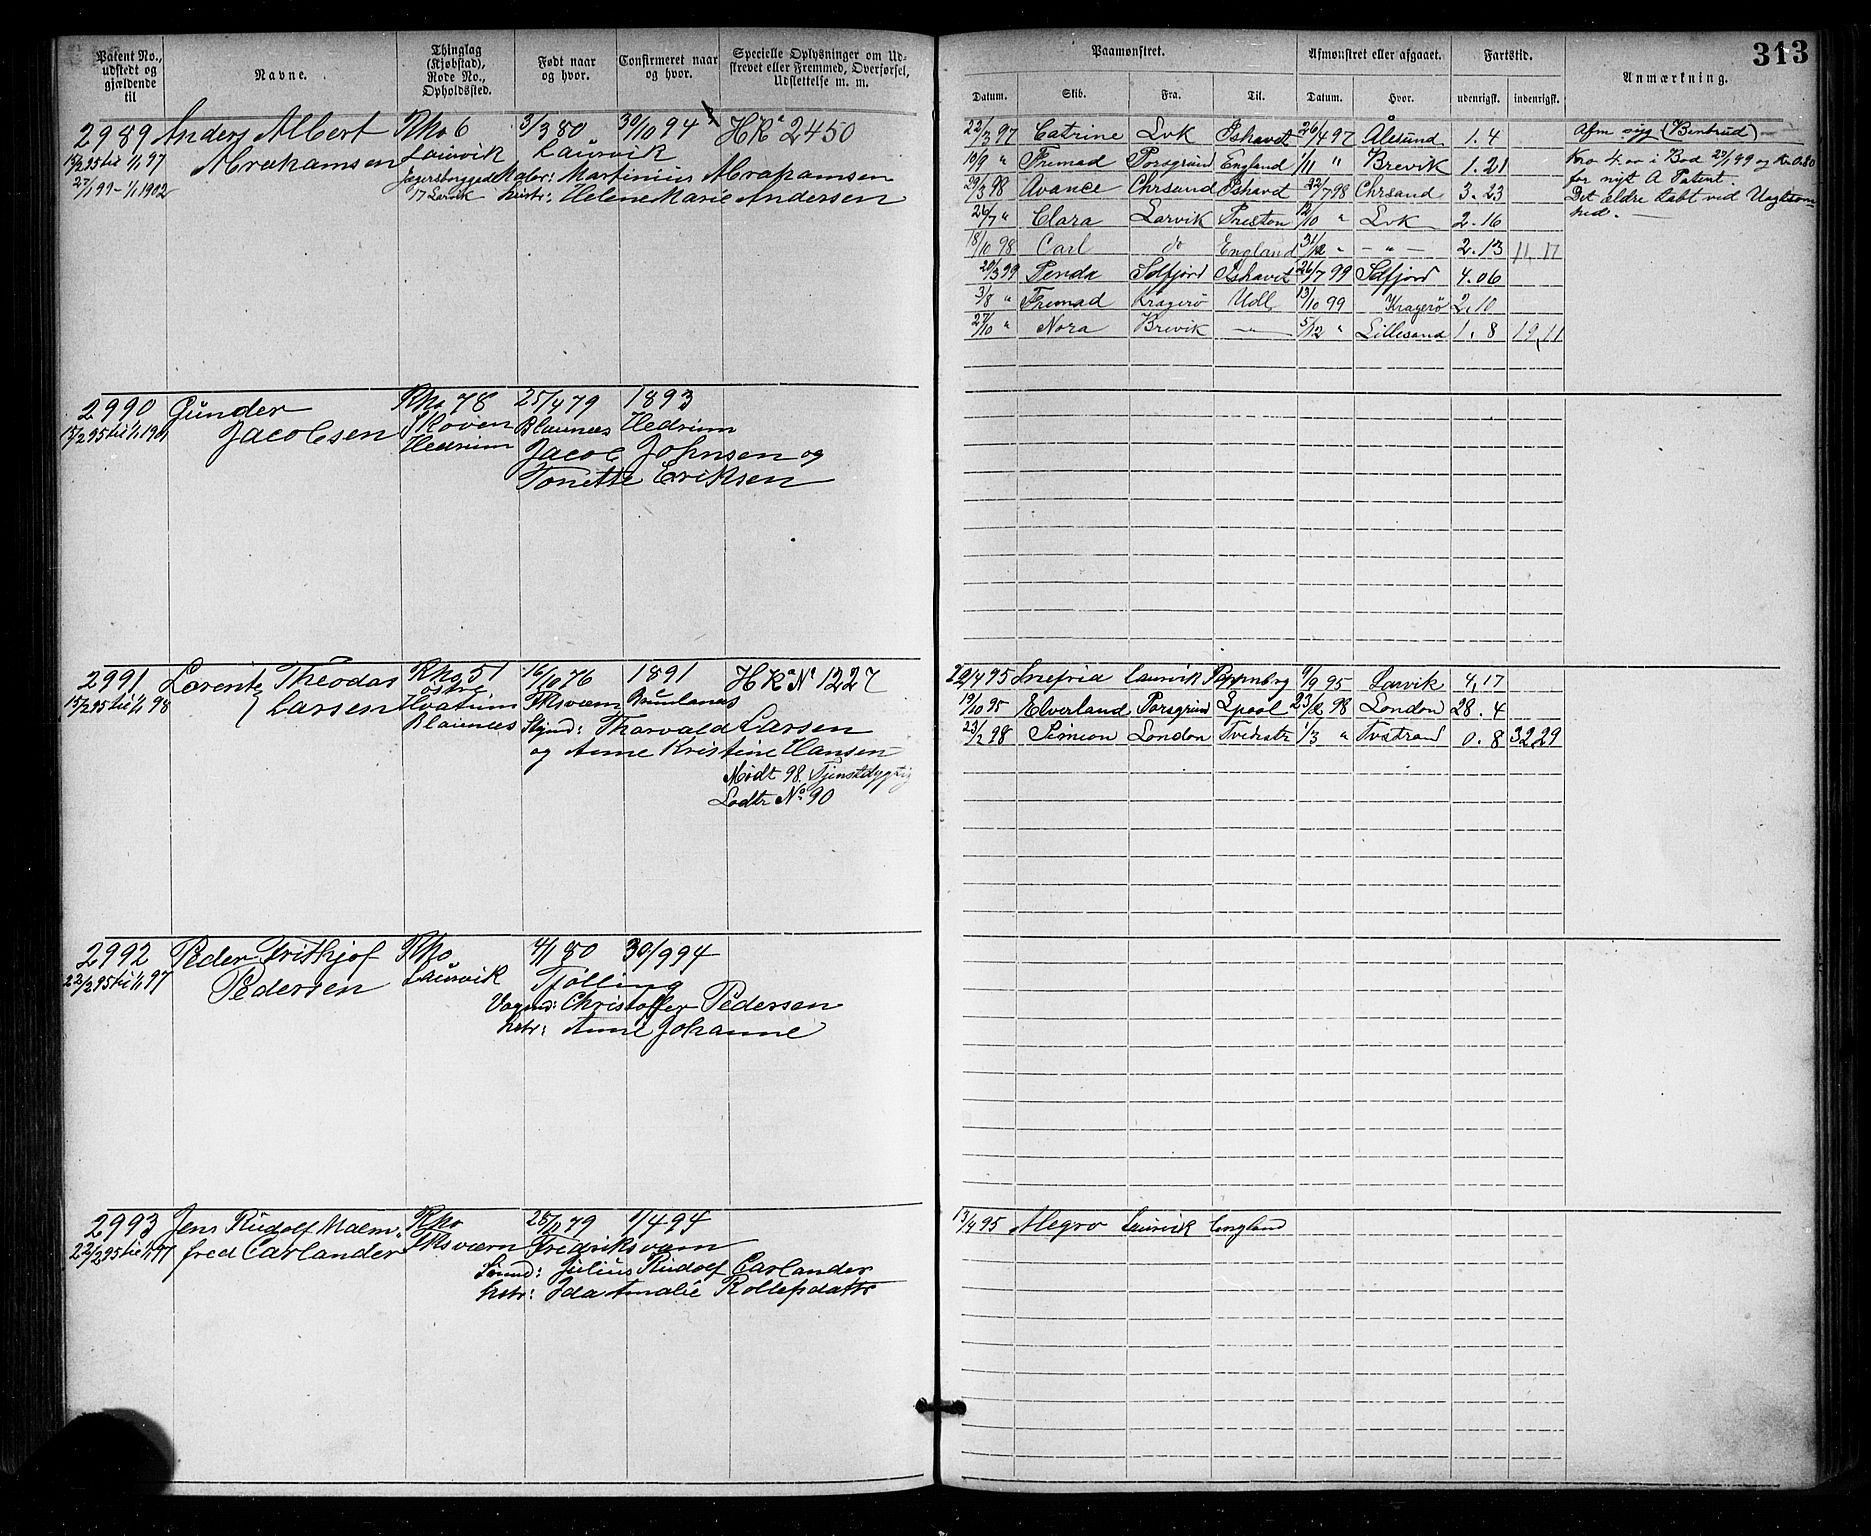 313
Patent No., udstedt og gjældende til
Navne.
Thinglag (Kjøbstad), Rode No., Opholdssted.
Født naar og hvor.
Confirmeret naar og hvor.
Specielle Oplysninger om Udskrevet eller Fremmed, Overførsel, Udslettelse m. m.
Paamønstret.
Afmønstret eller afgaaet.
Fartstid.
Anmærkning.
Datum. Skib. Fra. Til. Datum. Hvor. udenrigsk. indenrigsk.
2989 Anders Albert Rno 6 3/3 80 30/10 94 HRa 2450
15/2 95 til 1/1 97 Abrahamsen Laurvik Laurvik
27/1 99 - 1/1 1902 Jegersborggd Maler: Martinius Abrahamsen
17 Larvik hstr: Helene Marie Andersen
22/3 97 Catrine Lvk Ishavet 26/4 97 Ålesund 1.4
10/9 " Fremad Porsgrund England 1/11 " Brevik 1.21
29/3 98 Avance Chrsand Ishavet 22/7 98 Chrsand 3.23
26/7 " Clara Larvik Preston 12/10 " Lvk 2.16
18/10 98 Carl do England 31/12 " - " - 2.13 11,17
20/3 99 Penda Ishavet 26/7 99 4.06
3/8 " Fremad Kragerø Udl 13/10 99 Kragerø 2.10
27/10 " Nora Brevik - " - 5/12 " Lillesand 1.8 19,11
Afm syg (Benbrud)
Kro 4.00 i Bod 27/1 99 og Kr 0.80
for nyt A Patent.
Det ældre tabt ved Uagtsom-
hed.
2990 Gunder Rno 78 25/4 79 1893
15/2 95 til 1/1 Jacobsen Skoven Blaunes Hedrum
Hedrum Jacob Johnsen og
Tonette Eriksen
2991 Larentz Theodor Rno 51 16/10 76 1891 HRa N 1227
15/2 95 til 1/1 98 Larsen østre Fksværn Brunlanes
Hvatum
Blaunes Skjmd: Thorvald Larsen
og Anne Kristine Hansen
Mødt 98. Tjenstdygtig
Lodtr No. 90
4/95 Snefrid Laurvik 9/9 95 Larvik 4,17
19/10 95 Elverland Porsgrund Lpool 23/2 98 London 28.4
23/2 98 Simeon London Tvedestr 1/3 " Tvstrand 0.8 32,29
2992 Peder Frithjof Rno 4/1 80 30/9 94
22/2 95 til 1/1 97 Pedersen Laurvik Tjølling
Vognmd: Christoffer Pedersen
hstr: Anne Johanne
2993 Jens Rudolf Maem- Rno 28/11 79 1/4 94
22/2 95 til 1/1 97 fred Carlander Fksværn Fredriksværn
Sømd: Julius Rudolf Carlander
hstr: Ida Amalie Rollefsdatter
13/4 95 Alegro Laurvik England